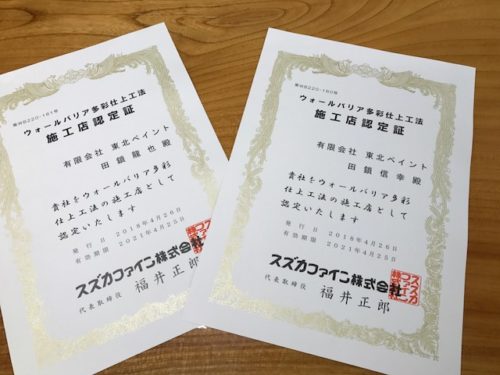 第WB220-161号
ウォールバリア多彩仕上工法
施工店認定証
有限会社 東北ペイント
田鎖 龍也殿
貴社をウォールバリア多彩
仕上工法の施工店として
認定いたします
発行日 2018年4月26日
有効期限 2021年4月25日
スズカファイン株式会社
代表取締役 福井正郎
第WB220-160号
ウォールバリア多彩仕上工法
施工店認定証
有限会社 東北ペイント
田鎖 信幸殿
貴社をウォールバリア多彩
仕上工法の施工店として
認定いたします
発行日 2018年4月26日
有効期限 2021年4月25日
スズカファイン株式会社
代表取締役 福井正郎